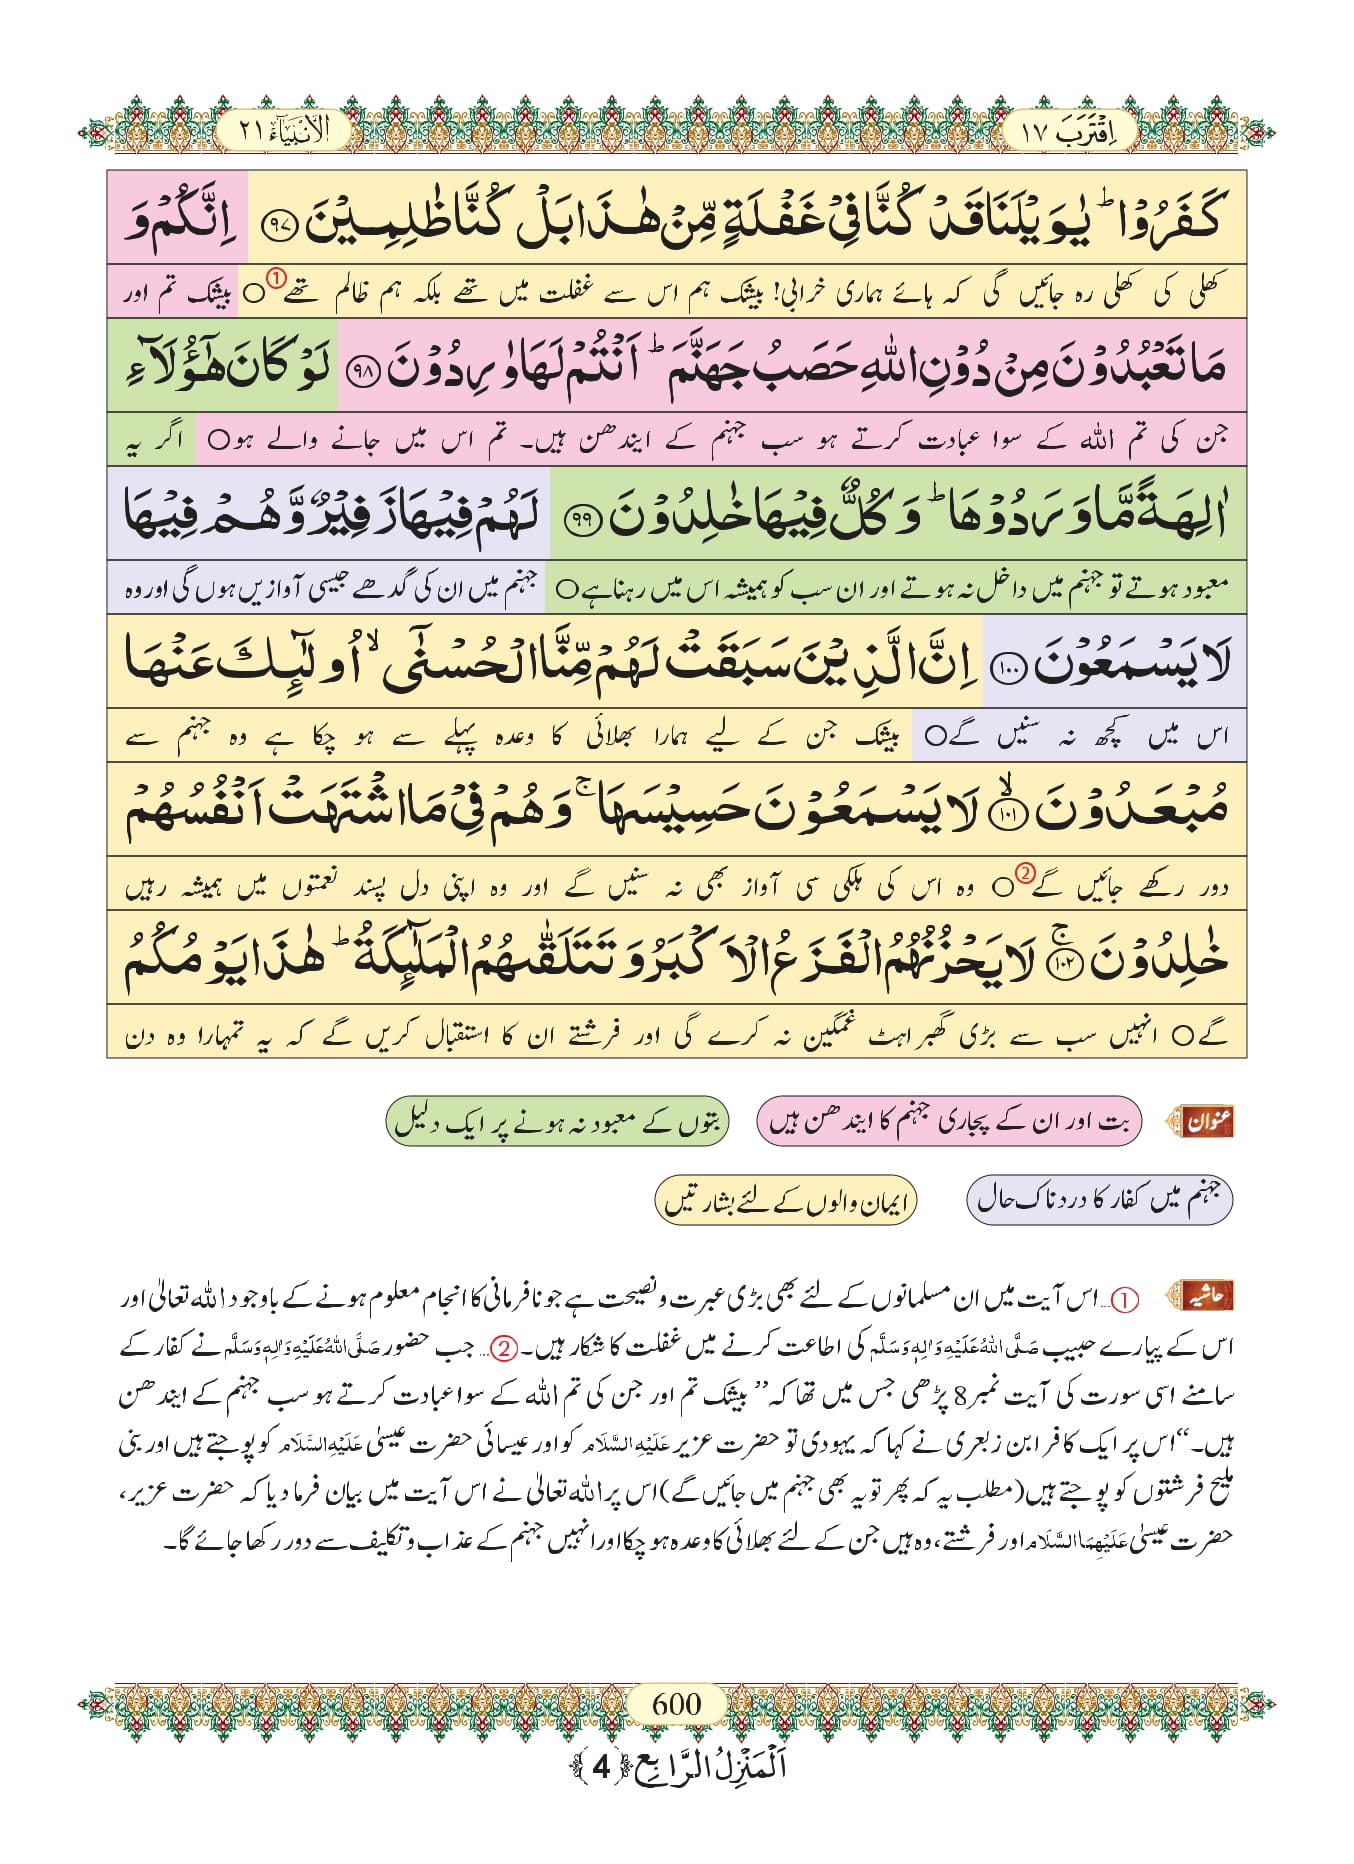 اِقْتَرَبَ ١٧
الْاَنْبِیَآء ٢١
كَفَرُوْاؕ یٰوَیْلَنَا قَدْ كُنَّا فِیْ غَفْلَةٍ مِّنْ هٰذَا بَلْ كُنَّا ظٰلِمِیْنَ ﴿۹۷﴾ اِنَّكُمْ وَ
کھلی کی کھلی رہ جائیں گی کہ ہائے ہماری خرابی! بیشک ہم اس سے غفلت میں تھے بلکہ ہم ظالم تھے ① ○ بیشک تم اور
مَا تَعْبُدُوْنَ مِنْ دُوْنِ اللّٰهِ حَصَبُ جَهَنَّمَؕ اَنْتُمْ لَهَا وٰرِدُوْنَ ﴿۹۸﴾ لَوْ كَانَ هٰۤؤُلَآءِ
جن کی تم اللہ کے سوا عبادت کرتے ہو سب جہنم کے ایندھن ہیں۔ تم اس میں جانے والے ہو ○ اگر یہ
اٰلِهَةً مَّا وَرَدُوْهَاؕ وَ كُلٌّ فِیْهَا خٰلِدُوْنَ ﴿۹۹﴾ لَهُمْ فِیْهَا زَفِیْرٌ وَّ هُمْ فِیْهَا
معبود ہوتے تو جہنم میں داخل نہ ہوتے اور ان سب کو ہمیشہ اس میں رہنا ہے ○ جہنم میں ان کی گدھے جیسی آوازیں ہوں گی اور وہ
لَا یَسْمَعُوْنَ ﴿۱۰۰﴾ اِنَّ الَّذِیْنَ سَبَقَتْ لَهُمْ مِّنَّا الْحُسْنٰۤىۙ اُولٰٓىٕكَ عَنْهَا
اس میں کچھ نہ سنیں گے ○ بیشک جن کے لیے ہمارا بھلائی کا وعدہ پہلے سے ہو چکا ہے وہ جہنم سے
مُبْعَدُوْنَۙ ﴿۱۰۱﴾ لَا یَسْمَعُوْنَ حَسِیْسَهَاۚ وَ هُمْ فِیْ مَا اشْتَهَتْ اَنْفُسُهُمْ
دور رکھے جائیں گے ② ○ وہ اس کی ہلکی سی آواز بھی نہ سنیں گے اور وہ اپنی دل پسند نعمتوں میں ہمیشہ رہیں
خٰلِدُوْنَۚ ﴿۱۰۲﴾ لَا یَحْزُنُهُمُ الْفَزَعُ الْاَكْبَرُ وَ تَتَلَقّٰىهُمُ الْمَلٰٓىٕكَةُؕ هٰذَا یَوْمُكُمُ
گے ○ انہیں سب سے بڑی گھبراہٹ غمگین نہ کرے گی اور فرشتے ان کا استقبال کریں گے کہ یہ تمہارا وہ دن
عنوان بت اور ان کے پجاری جہنم کا ایندھن ہیں بتوں کے معبود نہ ہونے پر ایک دلیل
جہنم میں کفار کا دردناک حال ایمان والوں کے لئے بشارتیں
حاشیہ ①... اس آیت میں ان مسلمانوں کے لئے بھی بڑی عبرت و نصیحت ہے جو نافرمانی کا انجام معلوم ہونے کے باوجود اللہ تعالیٰ اور
اس کے پیارے حبیب صَلَّی اللہُ عَلَیْہِ وَاٰلِہٖ وَسَلَّم کی اطاعت کرنے میں غفلت کا شکار ہیں۔ ②... جب حضور صَلَّی اللہُ عَلَیْہِ وَاٰلِہٖ وَسَلَّم نے کفار کے
سامنے اسی سورت کی آیت نمبر 8 پڑھی جس میں تھا کہ ”بیشک تم اور جن کی تم اللہ کے سوا عبادت کرتے ہو سب جہنم کے ایندھن
ہیں۔“ اس پر ایک کافر ابن زبعری نے کہا کہ یہودی تو حضرت عزیر عَلَیْہِ السَّلَام کو اور عیسائی حضرت عیسیٰ عَلَیْہِ السَّلَام کو پوجتے ہیں اور بنی
ملیح فرشتوں کو پوجتے ہیں (مطلب یہ کہ پھر تو یہ بھی جہنم میں جائیں گے) اس پر اللہ تعالیٰ نے اس آیت میں بیان فرما دیا کہ حضرت عزیر،
حضرت عیسیٰ عَلَیْہِمَا السَّلَام اور فرشتے، وہ ہیں جن کے لئے بھلائی کا وعدہ ہو چکا اور انہیں جہنم کے عذاب و تکلیف سے دور رکھا جائے گا۔
600
اَلْمَنْزِلُ الرَّابِع ﴿4﴾